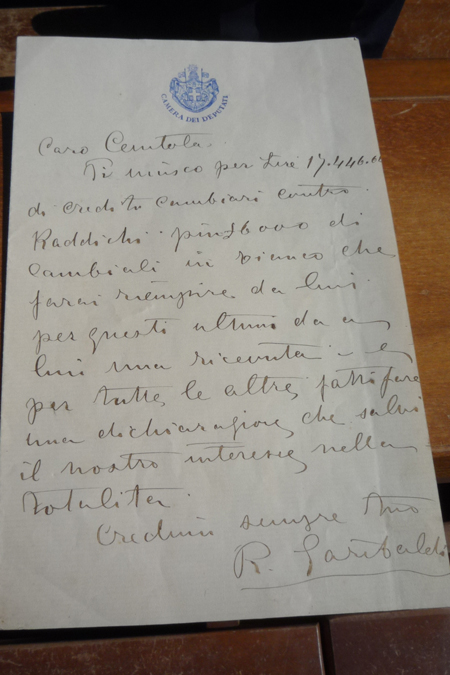 CAMERA DEI DEPUTATI
Caro Centola.
Ti unisco per Lire 17.446.00
di credito cambiari contro
Raddichi più 26000 di
Cambiali in bianco che
farai riempire da lui.
per questi ultimi da a
lui una ricevuta e
per tutte le altre, fatti fare
una dichiarazione che salvi
il nostro interesse nella
totalità.
Credimi sempre tuo
R. Garibaldi